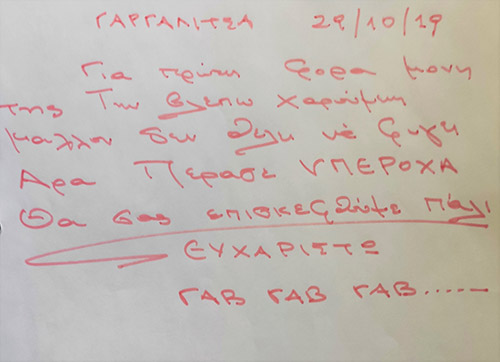 ΓΑΡΓΑΛΙΤΣΑ 29/10/19
Για πρώτη φορα μονη
της Την βλεπω χαρούμενη
μαλλον δεν θελει νά φυγει
Αρα Περασε ΥΠΕΡΟΧΑ
Θα σας επισκεφθούμε πάλι
ΕΥΧΑΡΙΣΤΩ
ΓΑΒ ΓΑΒ ΓΑΒ......